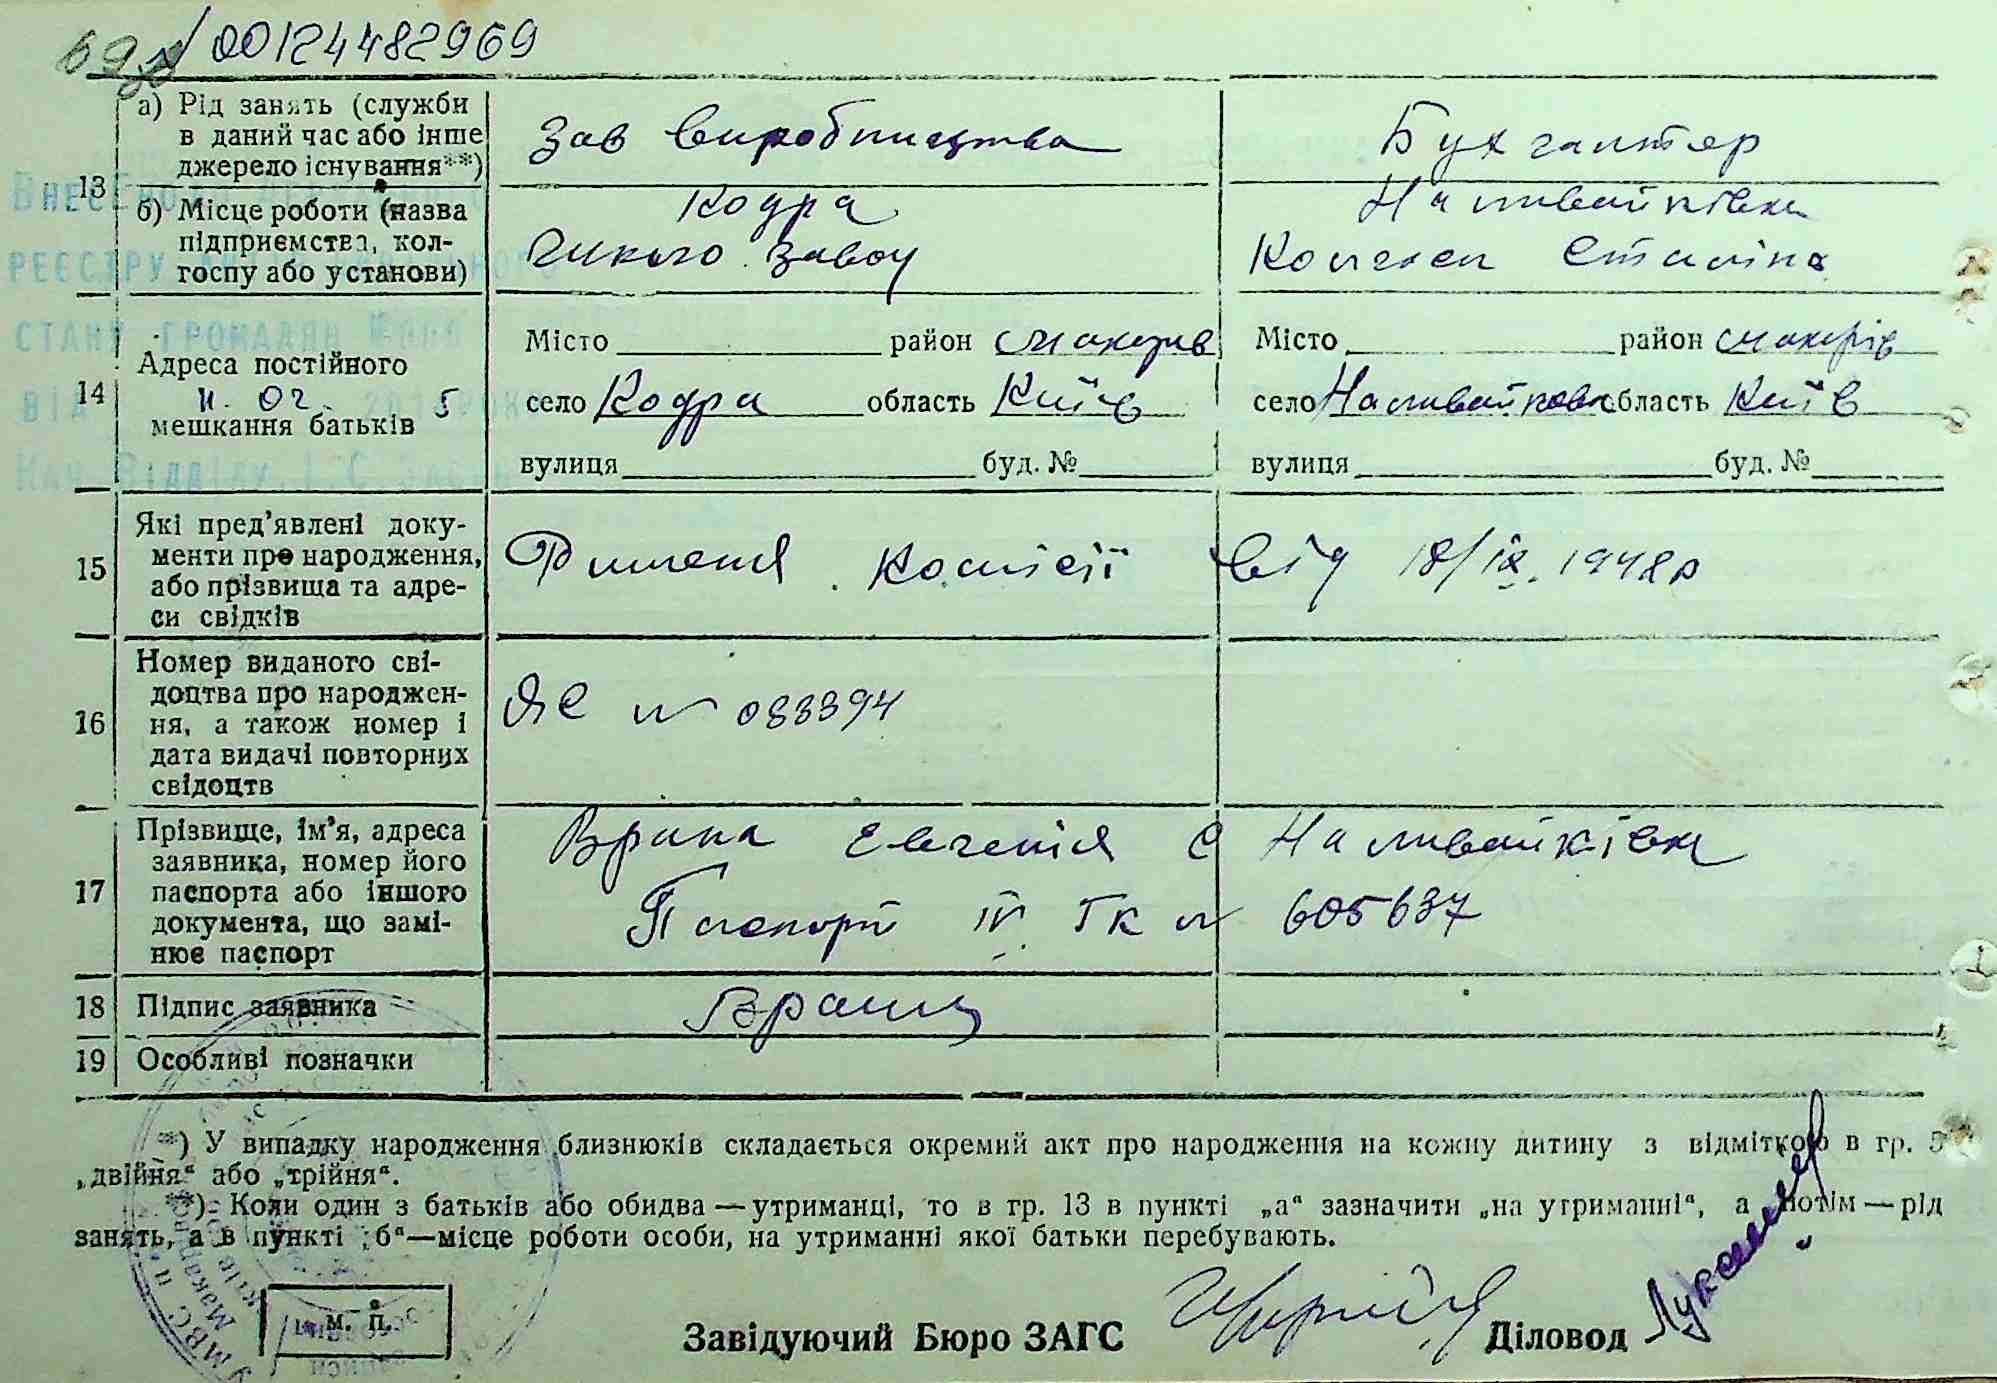 00124482969
а) Рід занять (служби в даний час або інше джерело існування**)
Зав виробництва
Бухгалтер
13
б) Місце роботи (назва підприємства, колгоспу або установи)
Кодра
завод
Наливайківка
Колгосп Сталіна
14
Адреса постійного мешкання батьків
Місто район Макарів
село Кодра область Київ
вулиця буд. №
Місто район Макарів
село Наливайковка область Київ
вулиця буд. №
Внесено до Державного
реєстру
стану громадян
від 11. 02. 2015 рок
Нач. Відділу
15
Які пред'явлені доку-
менти про народження,
або прізвища та адре-
си свідків
Рішення Комісії від 18/ІХ. 1948р
16
Номер виданого сві-
доцтва про народжен-
ня, а також номер і
дата видачі повторних
свідоцтв
ЯС № 083394
17
Прізвище, ім'я, адреса
заявника, номер його
паспорта або іншого
документа, що замі-
нює паспорт
Евгенія С Наливайківка
Паспорт IV ГК № 605637
18
Підпис заявника
19
Особливі позначки
*) У випадку народження близнюків складається окремий акт про народження на кожну дитину з відміткою в гр. 5
„двійня“ або „трійня“.
**) Коли один з батьків або обидва — утриманці, то в гр. 13 в пункті „а“ зазначити „на утриманні“, а потім — рід
занять, а в пункті „б“ — місце роботи особи, на утриманні якої батьки перебувають.
м. п.
Завідуючий Бюро ЗАГС
Діловод